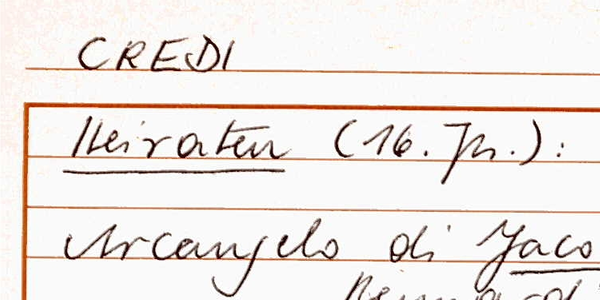 CREDI
Heiraten (16. Jh.):
Arcangelo di Jaco